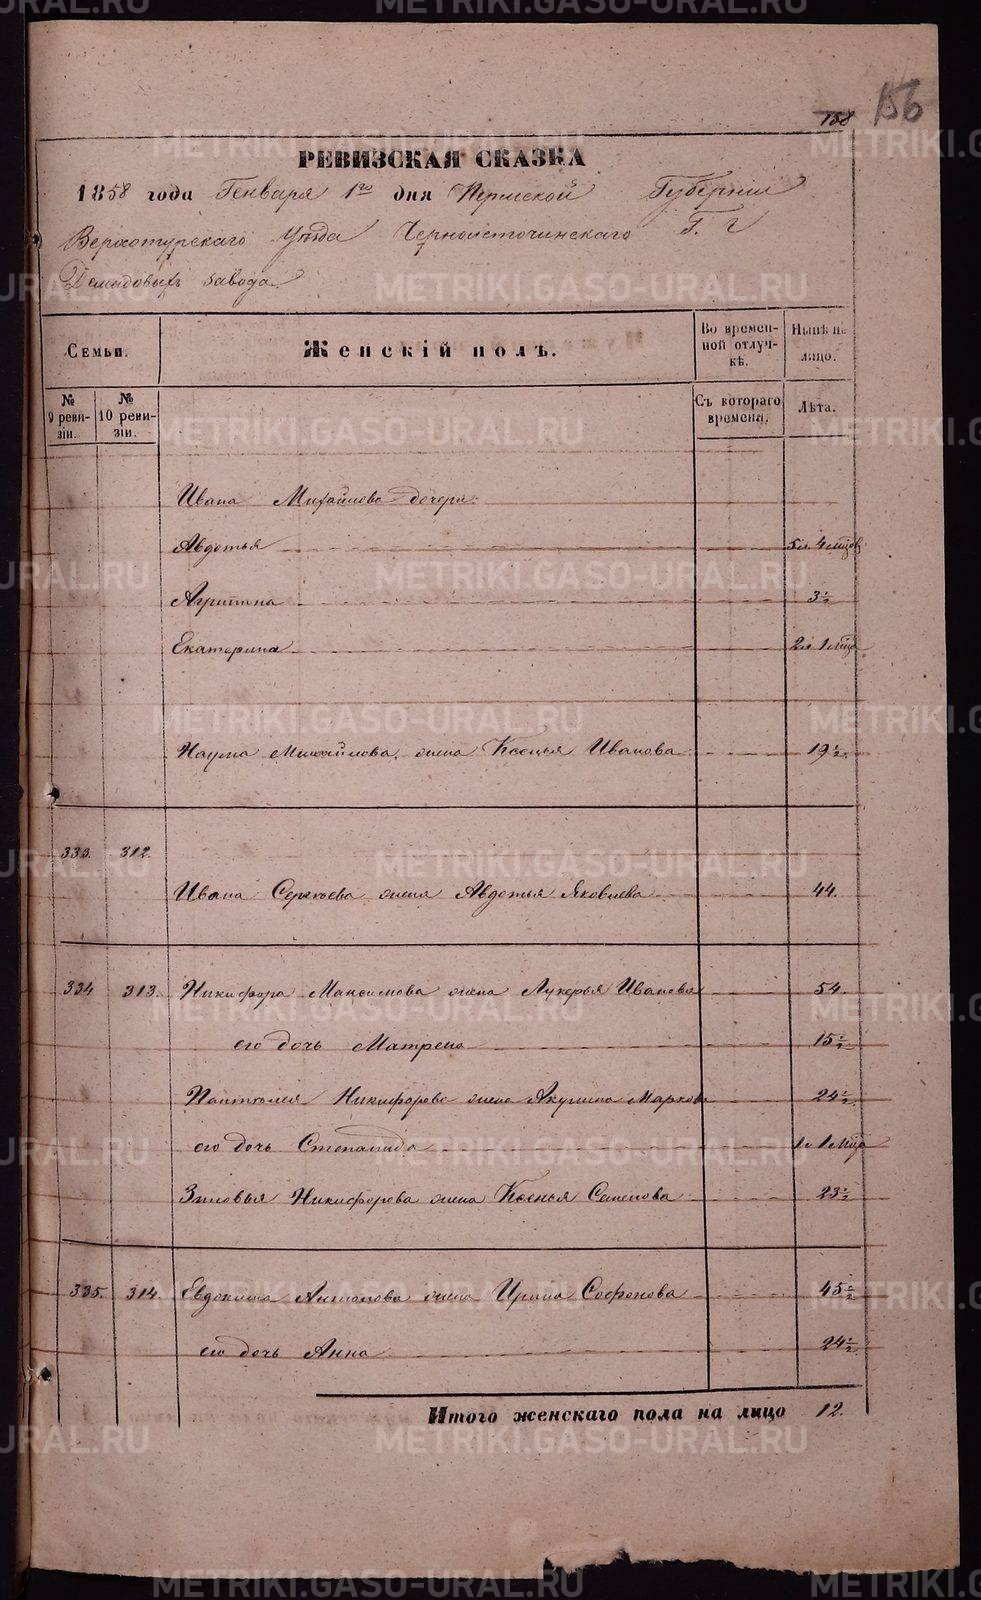 156
158
РЕВИЗСКАЯ СКАЗКА
1858 года Генваря 1го дня Пермской Губернии
Верхотурскаго Уѣзда Черноисточинскаго Г. Г
Демидовыхъ завода.
Семьи.
Женскій полъ.
Во временной отлучкѣ.
Нынѣ на лицо.
№ 9 ревизіи.
№ 10 ревизіи.
Съ котораго времени.
Лѣта.
Ивана Михайлова дочери:
Авдотья 5 л 4 мцов
Агрипина 3½
Екатерина 2 л 1 мца
Наума Михайлова жена Ксенья Иванова 19½
333. 312.
Ивана Сергѣева жена Авдотья Яковлева 44.
334 313. Никифора Максимова жена Лукерья Иванова 54.
его дочь Матрена 15½
Пантѣлея Никифорова жена Акулина Маркова 24½
его дочь Степанида 1 л 1 мца
Зиновья Никифорова жена Ксенья Семенова 23½
335. 314. Евдокима Антонова жена Ирина Софонова 45½
его дочь Анна 24½
Итого женскаго пола на лицо 12.
METRIKI.GASO-URAL.RU